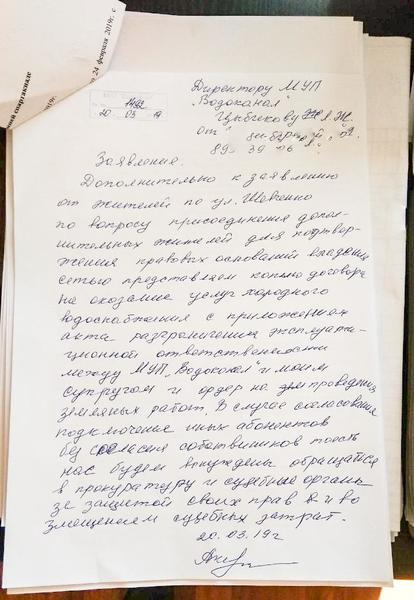 24 февраля 2019г. с
1492
20 03 19
Директору МУП
"Водоканал"
Цыбикову Ж.Ж.
от
89 39 06
Заявление.
Дополнительно к заявлению
от жителей по ул. Шевченко
по вопросу присоединения допол-
нительных жителей для подтвер-
ждения правовых оснований владения
сетью представляем копию договора
на оказание услуг холодного
водоснабжения с приложением
акта разграничения эксплуата-
ционной ответственности
между МУП "Водоканал" и моим
супругом и ордер на проведения
земляных работ. В случае согласования
подключения иных абонентов
без согласия собственников то есть
нас будем вынуждены обращаться
в прокуратуру и судебные органы
за защитой своих прав и во
змещением судебных затрат.
20.03.19г